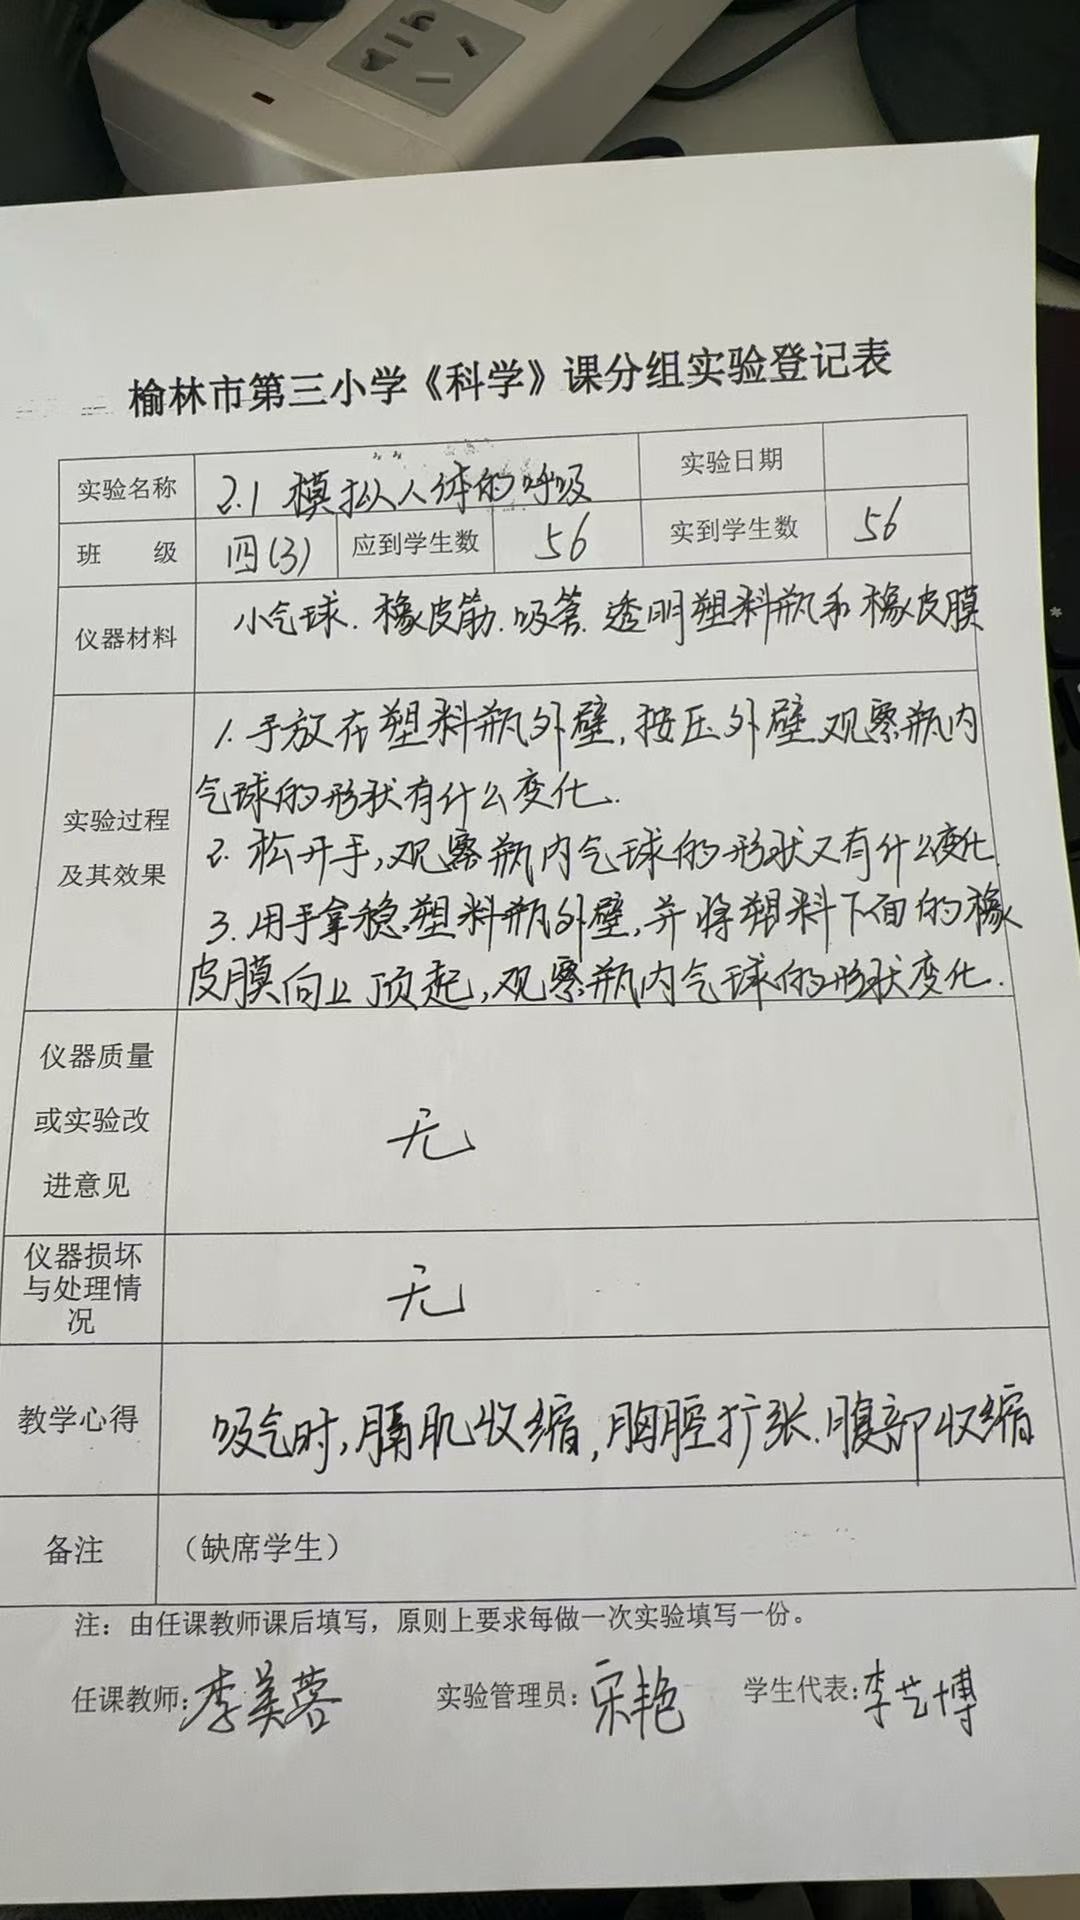 榆林市第三小学《科学》课分组实验登记表
实验名称 2.1 模拟人体的呼吸 实验日期
班 级 四(3) 应到学生数 56 实到学生数 56
仪器材料 小气球.橡皮筋.吸管.透明塑料瓶和橡皮膜
实验过程
及其效果
1.手放在塑料瓶外壁,按压外壁,观察瓶内
气球的形状有什么变化.
2.松开手,观察瓶内气球的形状又有什么变化.
3.用手拿稳塑料瓶外壁,并将塑料下面的橡
皮膜向上顶起,观察瓶内气球的形状变化.
仪器质量
或实验改
进意见
无
仪器损坏
与处理情
况
无
教学心得 吸气时,膈肌收缩,胸腔扩张.腹部收缩
备注 （缺席学生）
注：由任课教师课后填写，原则上要求每做一次实验填写一份。
任课教师:李美蓉 实验管理员:宋艳 学生代表:李艺博